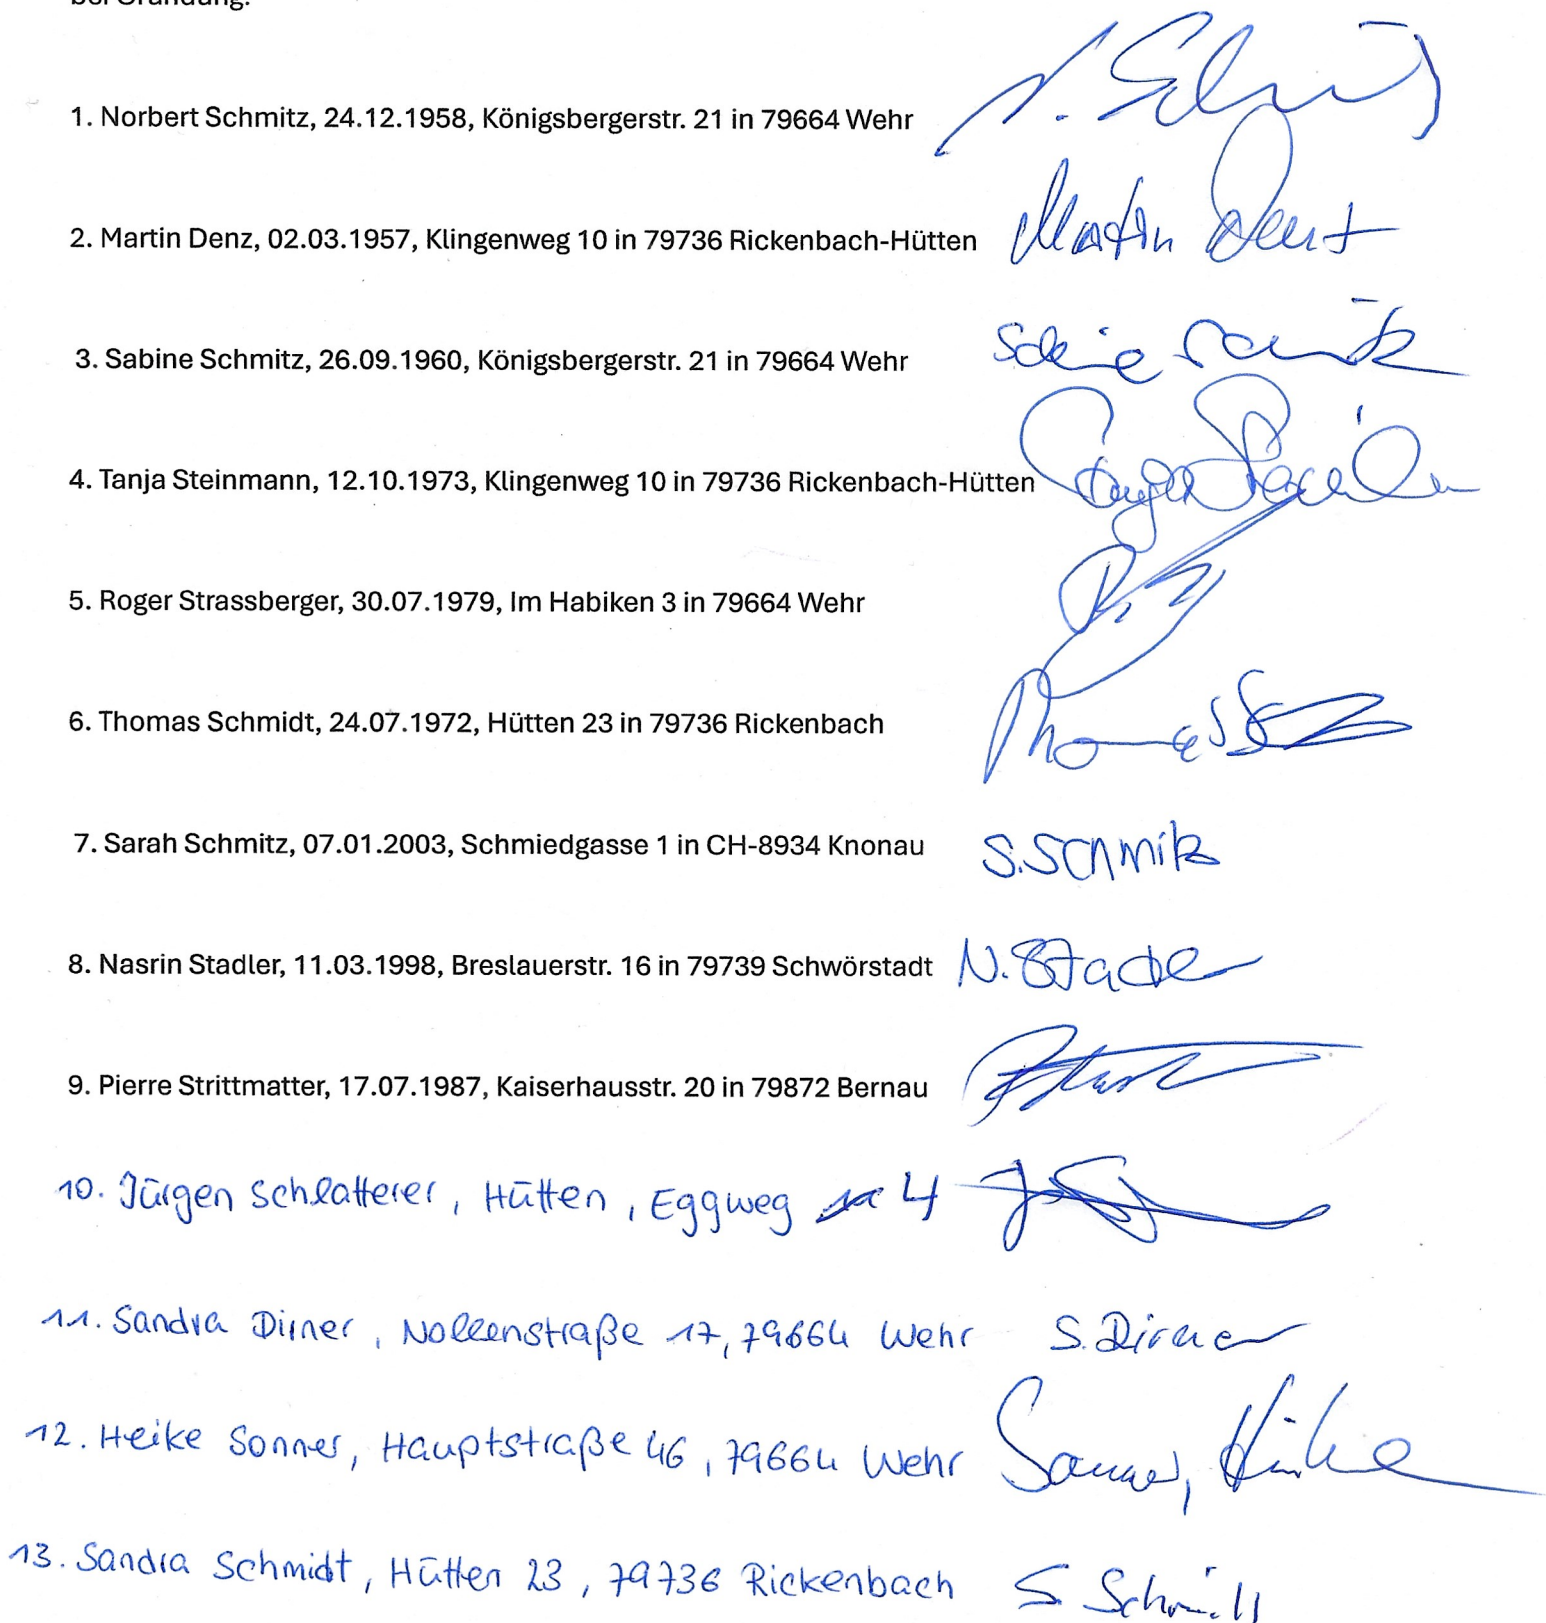 bei Gründung:
1. Norbert Schmitz, 24.12.1958, Königsbergerstr. 21 in 79664 Wehr N. Schmitz
2. Martin Denz, 02.03.1957, Klingenweg 10 in 79736 Rickenbach-Hütten Martin Denz
3. Sabine Schmitz, 26.09.1960, Königsbergerstr. 21 in 79664 Wehr Sabine Schmitz
4. Tanja Steinmann, 12.10.1973, Klingenweg 10 in 79736 Rickenbach-Hütten Tanja
5. Roger Strassberger, 30.07.1979, Im Habiken 3 in 79664 Wehr
6. Thomas Schmidt, 24.07.1972, Hütten 23 in 79736 Rickenbach Thomas
7. Sarah Schmitz, 07.01.2003, Schmiedgasse 1 in CH-8934 Knonau S. Schmitz
8. Nasrin Stadler, 11.03.1998, Breslauerstr. 16 in 79739 Schwörstadt N. Stadler
9. Pierre Strittmatter, 17.07.1987, Kaiserhausstr. 20 in 79872 Bernau
10. Jürgen Schlatterer, Hütten, Eggweg 4
11. Sandra Dirner, Nollenstraße 17, 79664 Wehr S. Dirner
12. Heike Sonner, Hauptstraße 46, 79664 Wehr Sonner, Heike
13. Sandra Schmidt, Hütten 23, 79736 Rickenbach S Schmidt